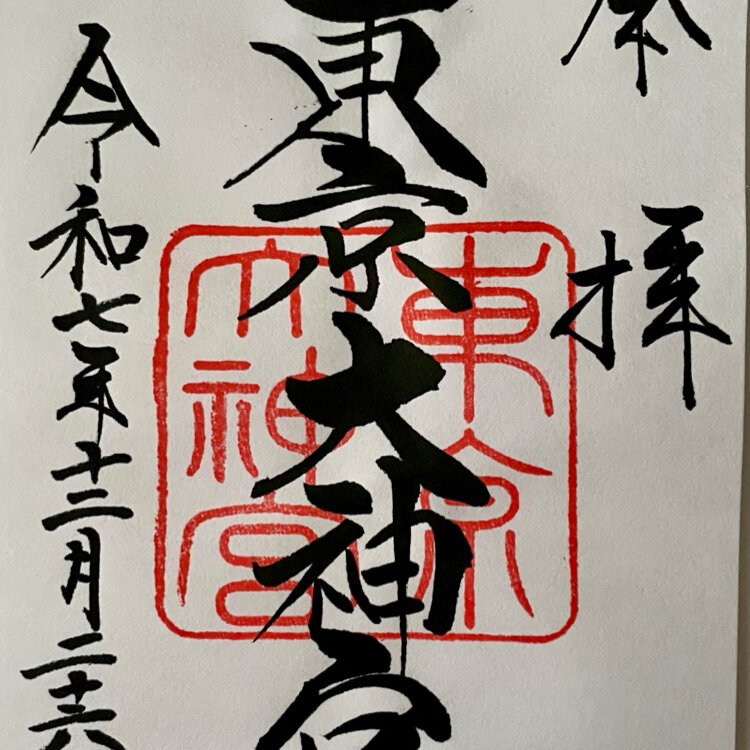 奉拝
東京大神宮
東京大神宮
令和七年十二月二十六